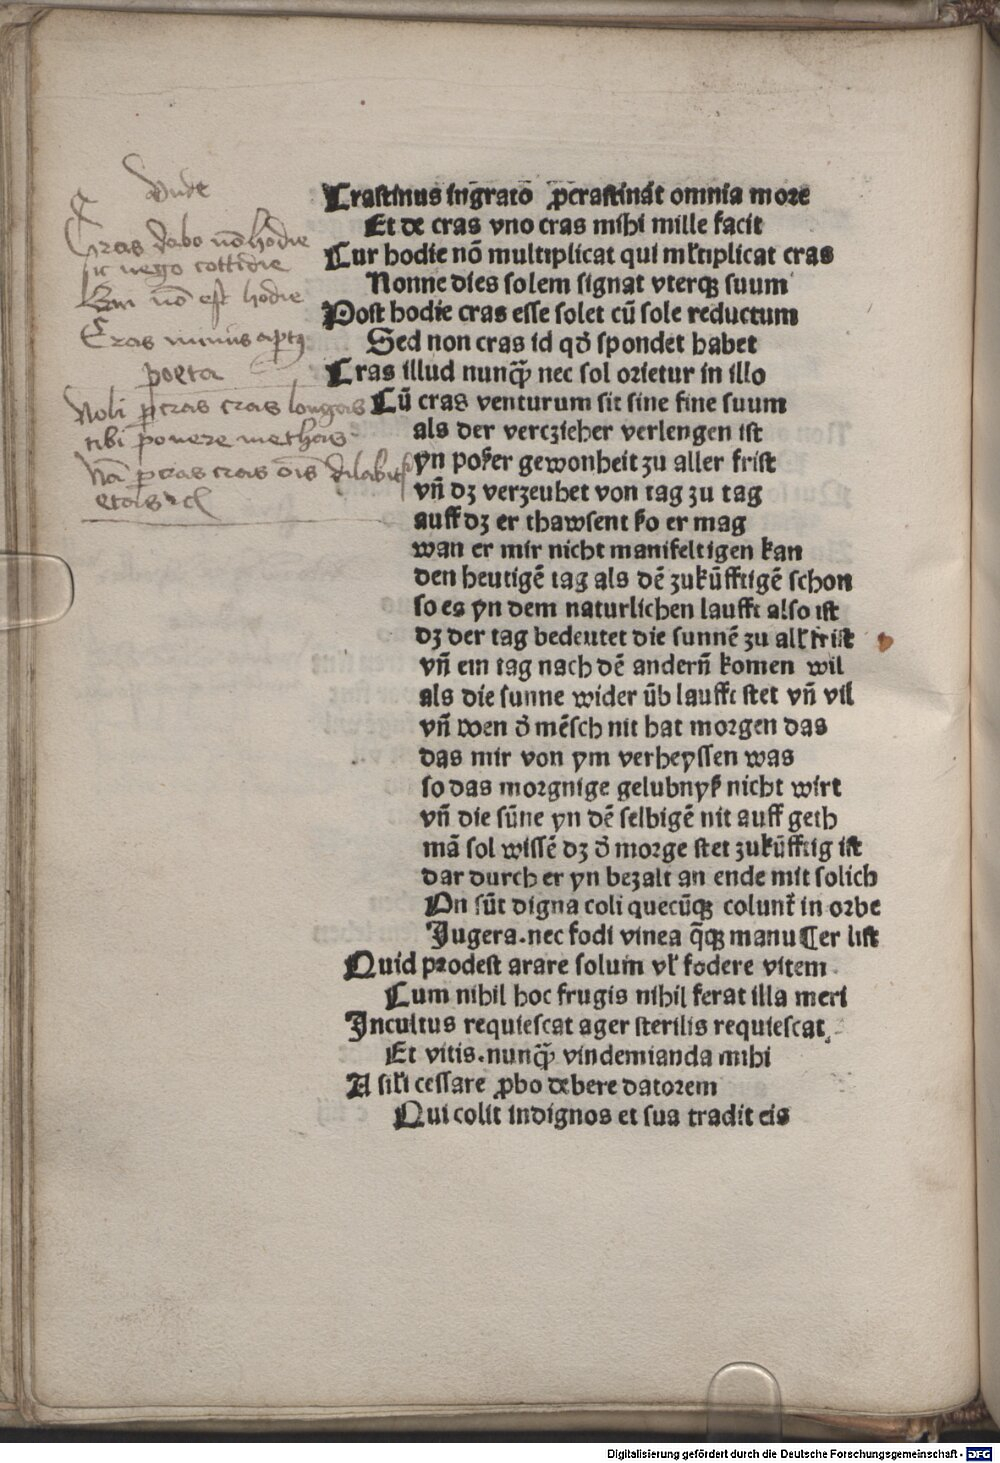 vnde
Cras dabo nō hodie
sic nego cottidie
Qui nō est hodie
Cras minus aptꝰ
poeta
Noli ꝓcras cras longas
tibi ponere methas
Nā ꝓcras cras oīs dilabit
etas ⁊cͣ
Crastinus ingrato ꝓcrastinat omnia more
Et de cras vno cras mihi mille facit
Cur hodie nō multiplicat qui ml̕tiplicat cras
Nonne dies solem signat vterqꝫ suum
Post hodie cras esse solet cū sole reductum
Sed non cras id qð spondet habet
Cras illud nunq̄ȝ nec sol orietur in illo
Cū cras venturum sit sine fine suum
als der verczieher verlengen ist
yn poßer gewonheit zu aller frist
vñ dz verzeuhet von tag zu tag
auff dz er thawsent ßo er mag
wan er mir nicht manifeltigen kan
den heutigē tag als dē zukūfftigē schon
so es yn dem naturlichen laufft also ist
dz der tag bedeutet die sunnē zu all̕ frist
vñ ein tag nach dē anderñ komen wil
als die sunne wider ūb laufft stet vñ vil
vñ wen ð mēsch nit hat morgen das
das mir von ym verheyssen was
so das morgnige gelubnyß nicht wirt
vñ die sūne yn dē selbigē nit auff geth
mā sol wissē dz ð morge stet zukūfftig ist
dar durch er yn bezalt an ende mit solich
Nn sūt digna coli quecūqꝫ colunt̕ in orbe
Jugera. nec fodi vinea q̄qꝫ manu ¶er list
Quid prodest arare solum vl̕ fodere vitem
Cum nihil hoc frugis nihil ferat illa meri
Incultus requiescat ager sterilis requiescat
Et vitis. nunq̄ȝ vindemianda mihi
A sil̕i cessare ꝓbo debere datorem
Qui colit indignos et sua tradit eis
Digitalisierung gefördert durch die Deutsche Forschungsgemeinschaft - DFG